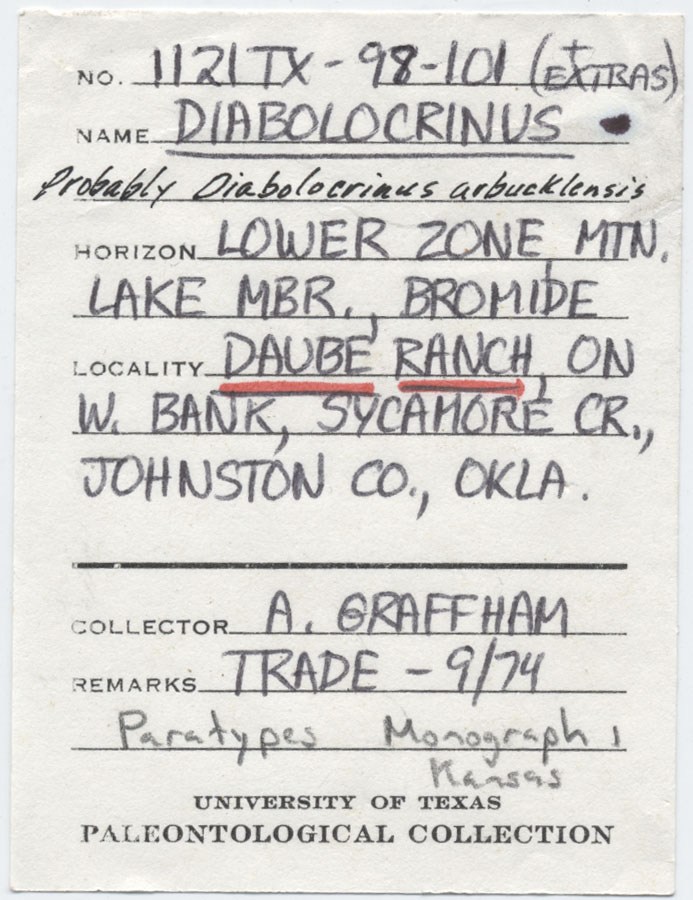 NO. 1121TX-98-101 (+ EXTRAS)
NAME DIABOLOCRINUS
Probably Diabolocrinus arbucklensis
HORIZON LOWER ZONE, MTN.
LAKE MBR., BROMIDE
LOCALITY DAUBE RANCH, ON
W. BANK, SYCAMORE CR.,
JOHNSTON CO., OKLA.
COLLECTOR A. GRAFFHAM
REMARKS TRADE - 9/74
Paratypes Monograph 1
Kansas
UNIVERSITY OF TEXAS
PALEONTOLOGICAL COLLECTION